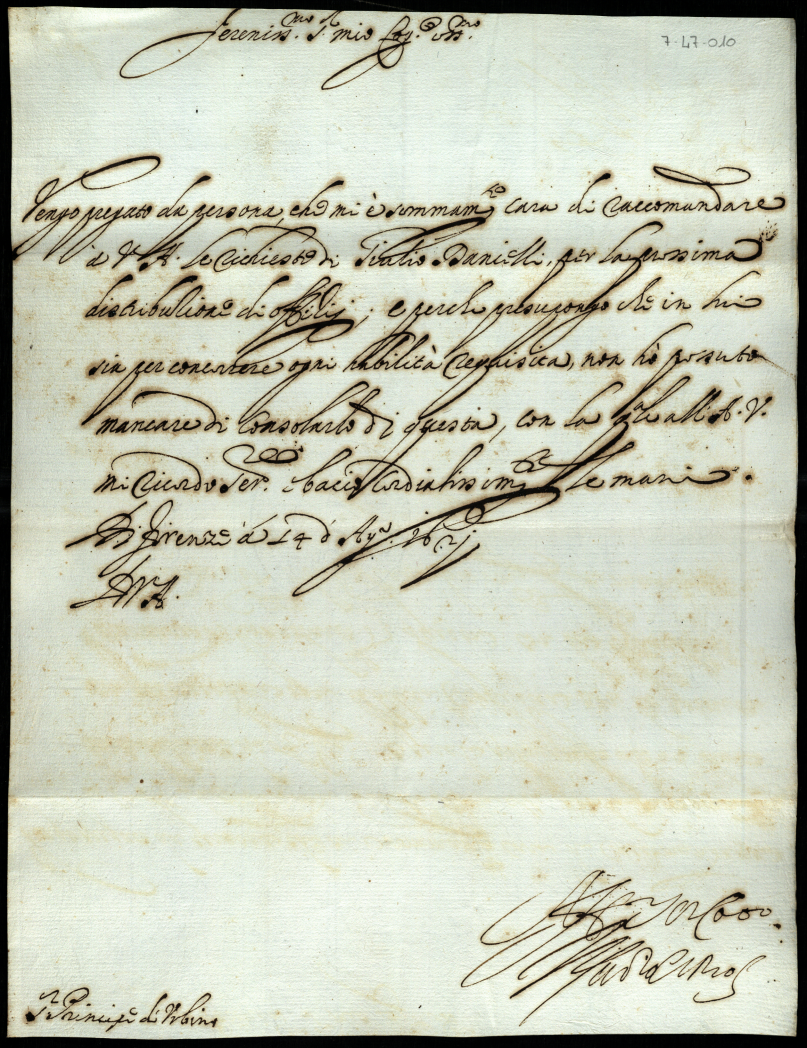 Sereniss.mo S.r mio Oss.mo
7-47-010
Vengo pregato da persona, che mi è sommam.te cara di raccomandare
à V. A. le richieste di Danielli, per la prossima
distributione di offitij; e perche presupongo che in lui
sia per concorrere ogni habilità requisita, non hò possuto
mancare di consolarlo di questa, con la q.le all' A. V.
mi ricordo Ser.re e bacio cordialissim.te le mani.
Di Firenze à 14 d' Ag.o
D. V. A.
S.r Principe di Urbino